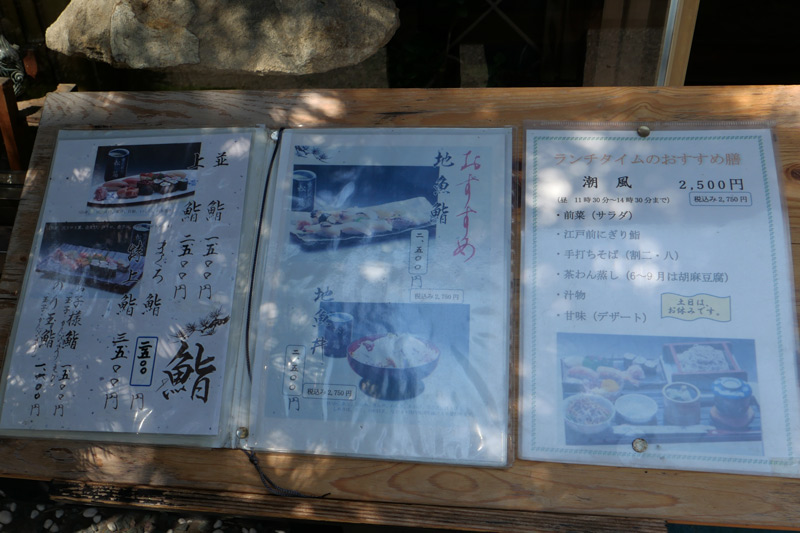 並鮨 一五〇〇円
上鮨 二五〇〇円
まぐろ鮨
二五〇〇円
特上鮨 三五〇〇円
子様鮨 一五〇〇円
鮨
おすすめ
地魚鮨
二、五〇〇円
税込み2,750円
地魚丼
二五〇〇円
税込み2,750円
ランチタイムのおすすめ膳
潮風 2.500円
(昼 11時30分〜14時30分まで) 税込み2,750円
・前菜（サラダ）
・江戸前にぎり鮨
・手打ちそば（割二・八）
・茶わん蒸し（6〜9月は胡麻豆腐）
・汁物
・甘味（デザート）
土日は、
お休みです。